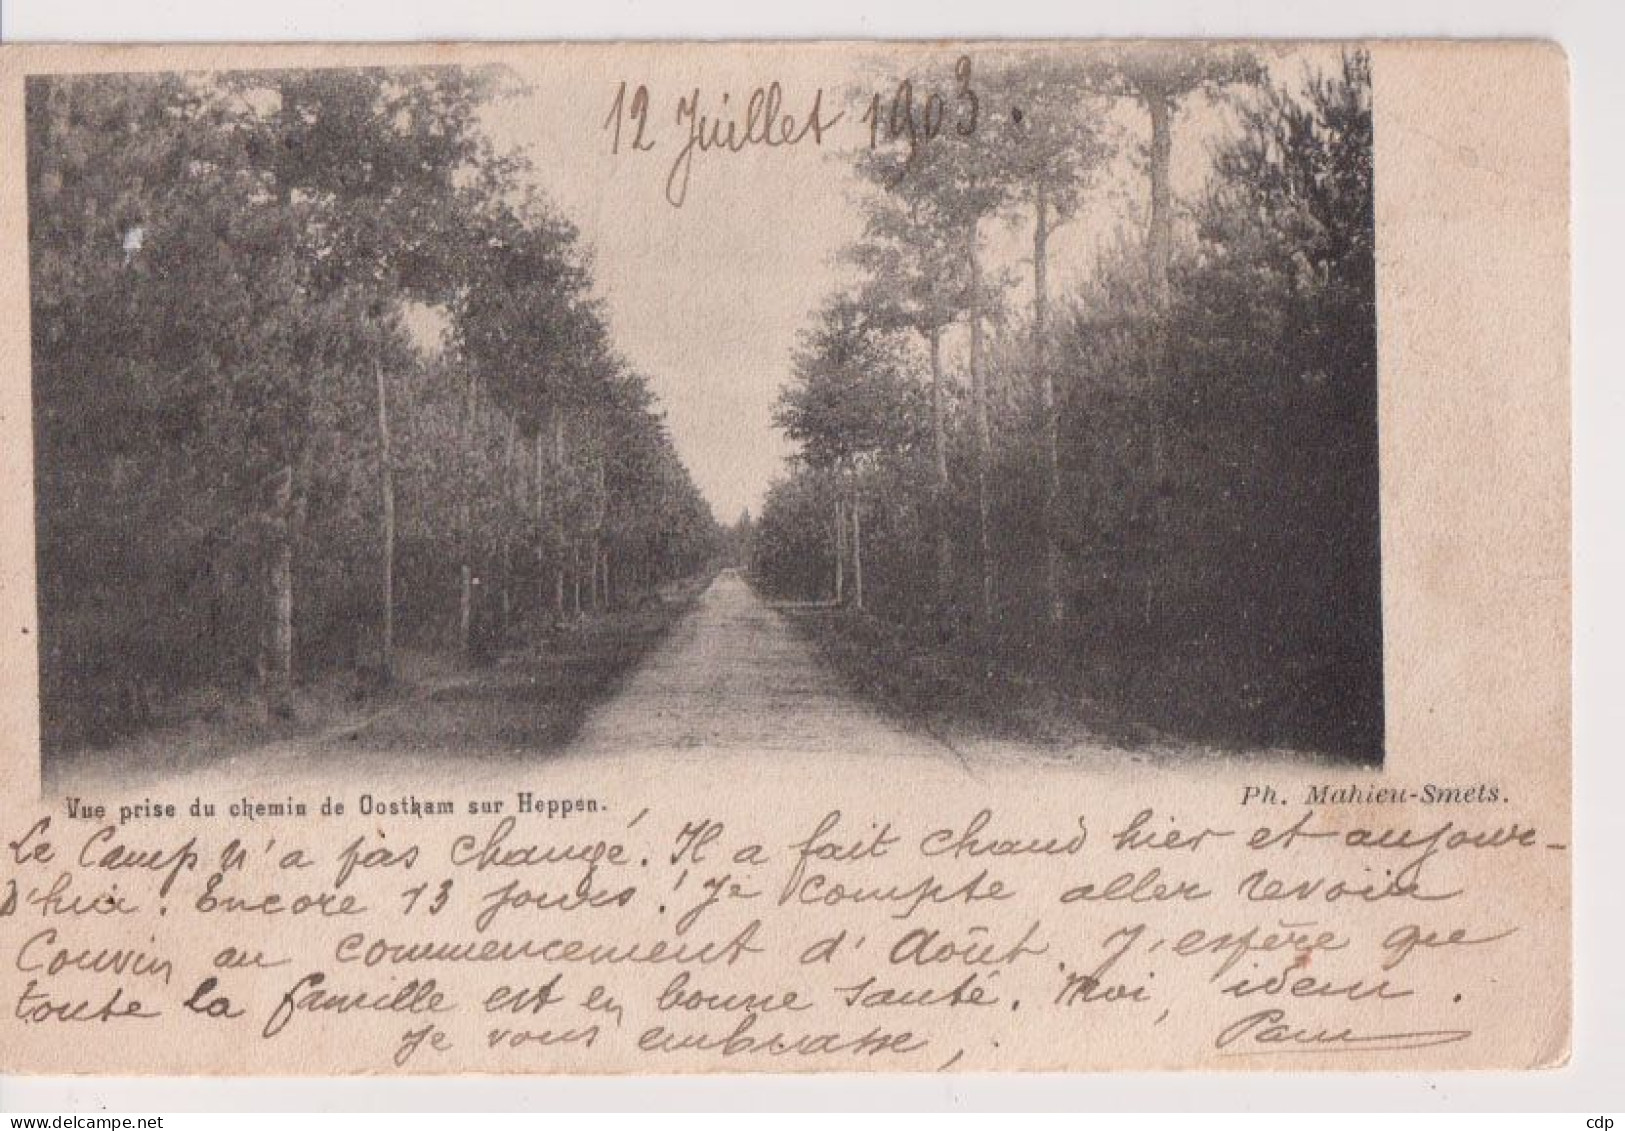 12 Juillet 1903.
Vue prise du chemin de Oostham sur Heppen.
Ph. Mahieu-Smets.
Le Camp n'a pas changé. Il a fait chaud hier et aujour-
D'hui. Encore 13 jours! Je compte aller revoir
Couvin au commencement d'Août. J'espère que
toute la famille est en bonne santé. Moi, idem.
Je vous embrasse,
www.delcampe.net
cdp